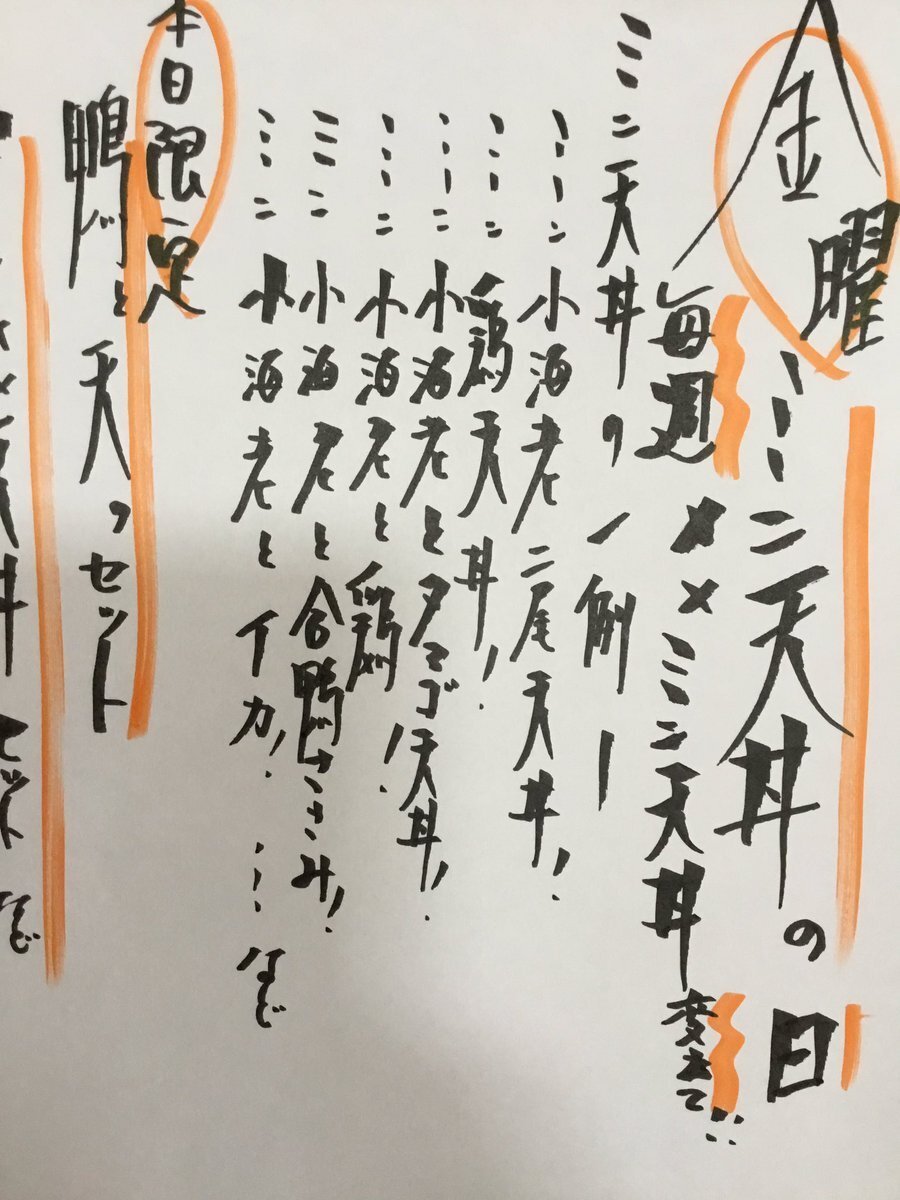 金曜
ミニ天丼の日
毎週××ミニ天丼変えて…
ミニ天丼の一例ー
ミニ小海老二尾天丼!
ミニ鶏天丼!
ミニ小海老とタマゴ天丼!
ミニ小海老と鶏!
ミニ小海老と合鴨ササミ!
ミニ小海老とイカ!…など
本日限定
鴨汁と天丼セット
丼セットなど